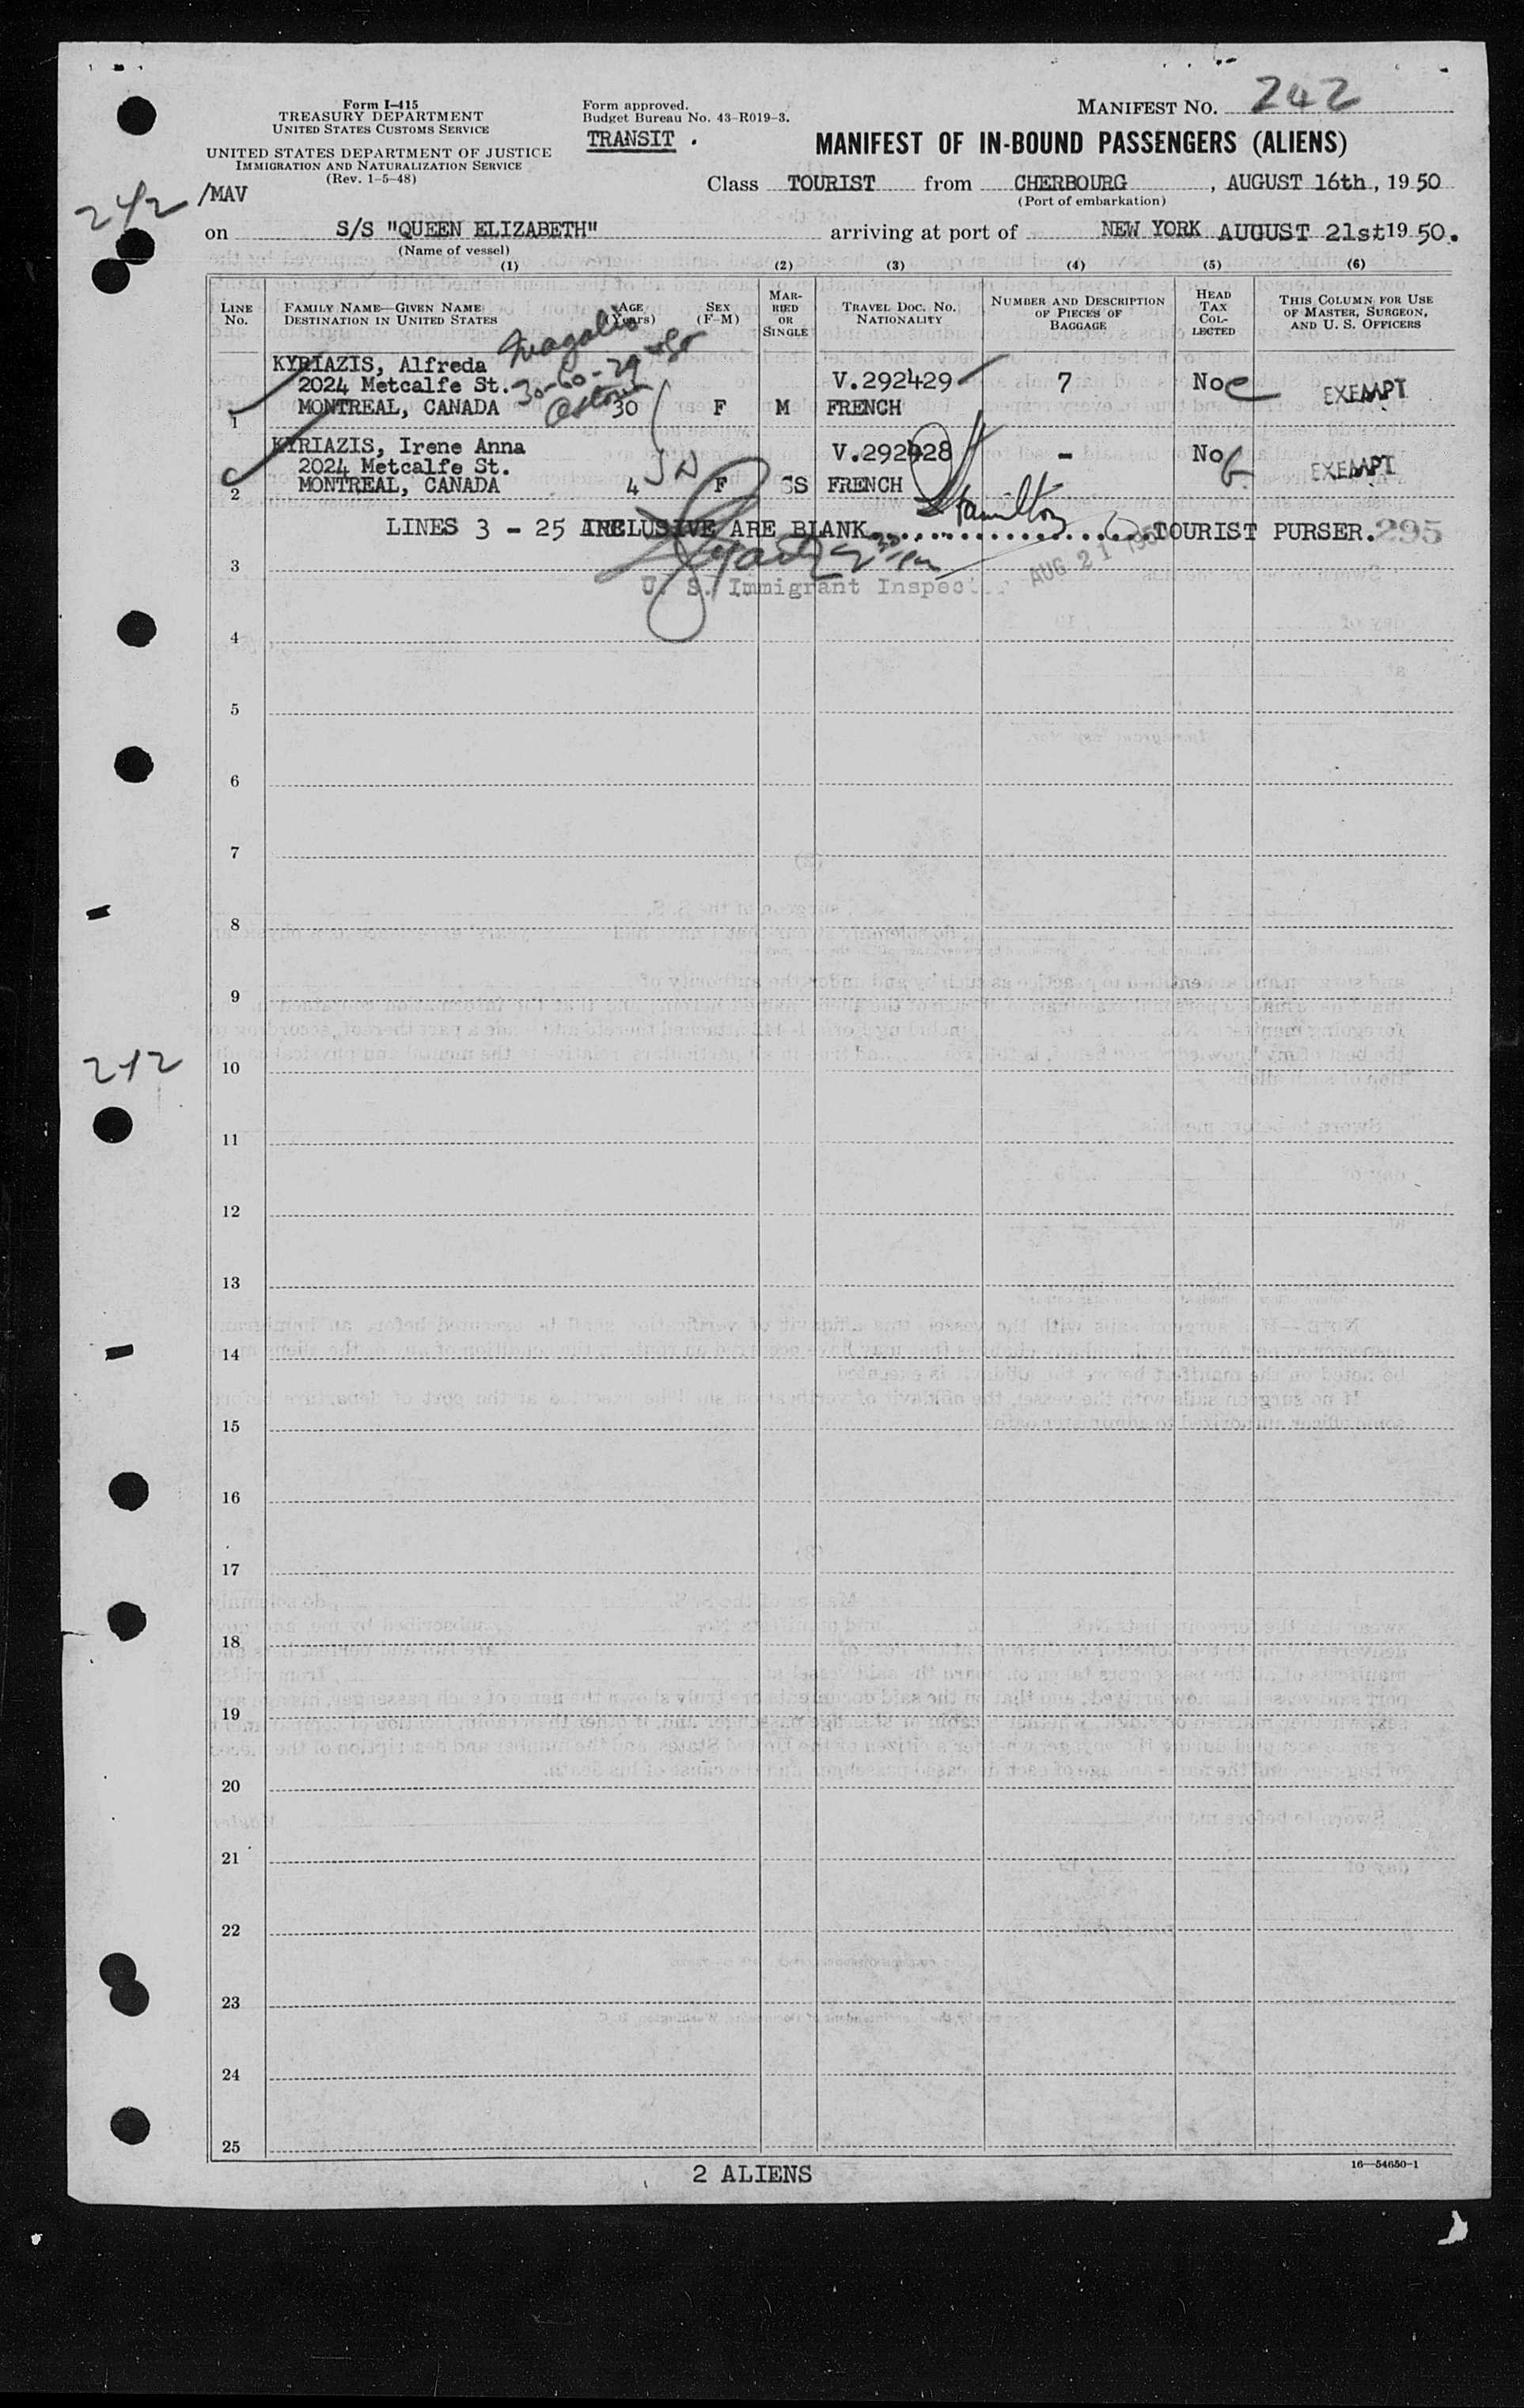 Form I-415
TREASURY DEPARTMENT
UNITED STATES CUSTOMS SERVICE
UNITED STATES DEPARTMENT OF JUSTICE
IMMIGRATION AND NATURALIZATION SERVICE
(Rev. 1-5-48)
Form approved.
Budget Bureau No. 43-R019-3.
TRANSIT .
MANIFEST NO. 242
MANIFEST OF IN-BOUND PASSENGERS (ALIENS)
242 /MAV
Class TOURIST from CHERBOURG, AUGUST 16th, 1950
(Port of embarkation)
on S/S "QUEEN ELIZABETH" arriving at port of NEW YORK AUGUST 21st 1950.
(Name of vessel)
(1) (2) (3) (4) (5) (6)
LINE No.
FAMILY NAME—GIVEN NAME
DESTINATION IN UNITED STATES
AGE (Years)
SEX (F-M)
MARRIED OR SINGLE
TRAVEL DOC. NO. NATIONALITY
NUMBER AND DESCRIPTION OF PIECES OF BAGGAGE
HEAD TAX COLLECTED
THIS COLUMN FOR USE OF MASTER, SURGEON, AND U. S. OFFICERS
KYRIAZIS, Alfreda
2024 Metcalfe St. 30-60-29 V.292429 7 No EXEMPT
1 MONTREAL, CANADA 30 F M FRENCH
KYRIAZIS, Irene Anna V.292428 - No EXEMPT
2024 Metcalfe St.
2 MONTREAL, CANADA 4 F S FRENCH
Hamilton
LINES 3 - 25 INCLUSIVE ARE BLANK....................TOURIST PURSER. 295
3
U. S. Immigrant Inspector AUG 21 1950
4
5
6
7
8
9
242
10
11
12
13
14
15
16
17
18
19
20
21
22
23
24
25
2 ALIENS
16—54650-1